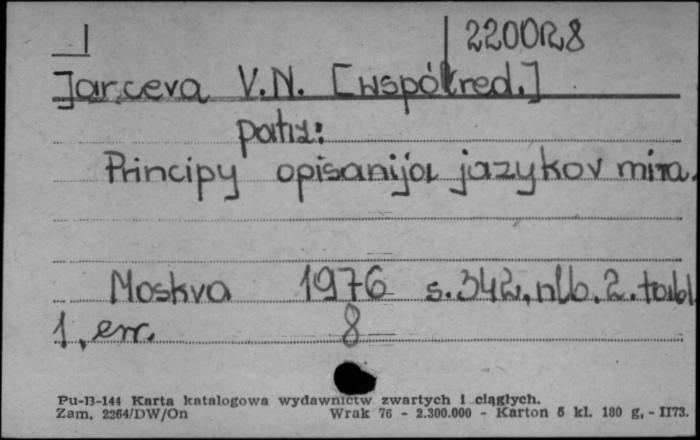 I 2200128
Jarceva V.N. [współred.]
patrz:
Principy opisanija jazykov mira.
Moskva 1976 s. 342, nlb. 2. tabl.
1, err. 8
Pu-B-144 Karta katalogowa wydawnictw zwartych i ciągłych.
Zam. 2264/DW/On Wrak 76 - 2.300.000 - Karton 5 kl. 180 g, - II73.